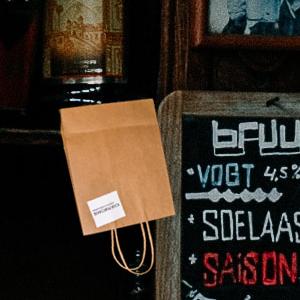 bruu
• VOGT 4,5%
• SOELAAS
• SAISON